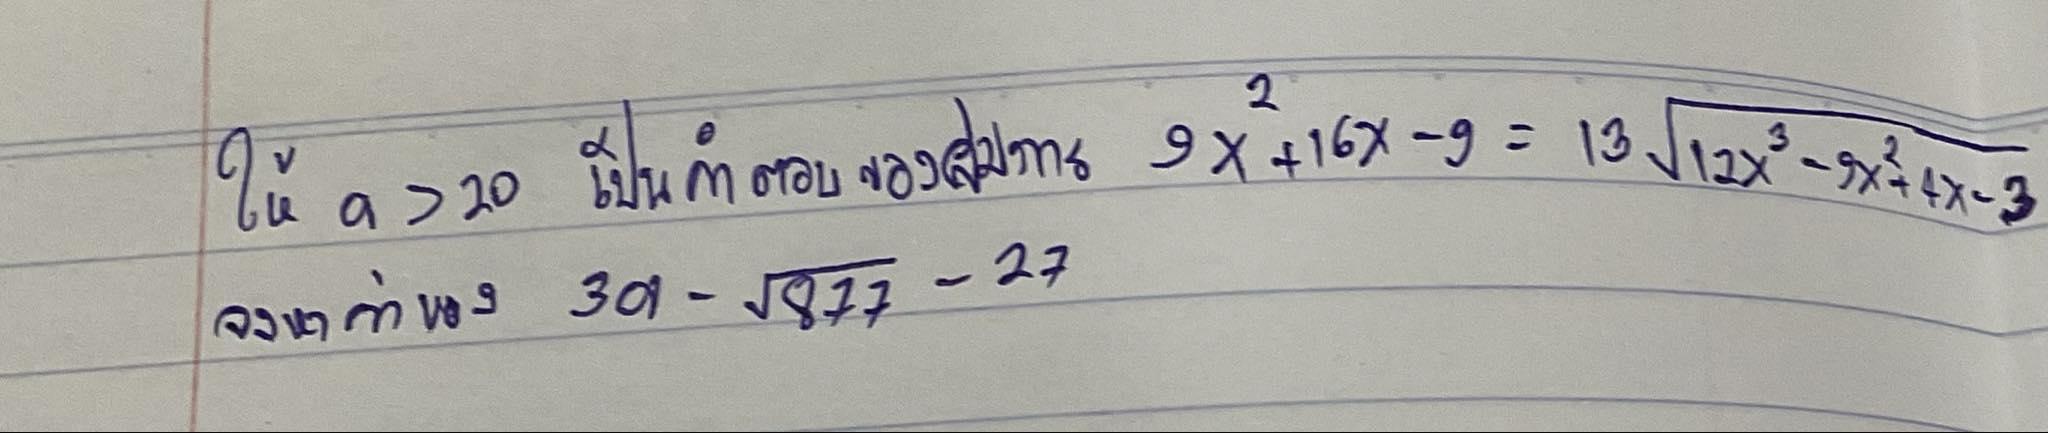 ให้ a > 20 เป็นคำตอบของสมการ 9x² + 16x - 9 = 13√(12x³ - 9x² + 4x - 3)
จงหาค่าของ 3a - √877 - 27